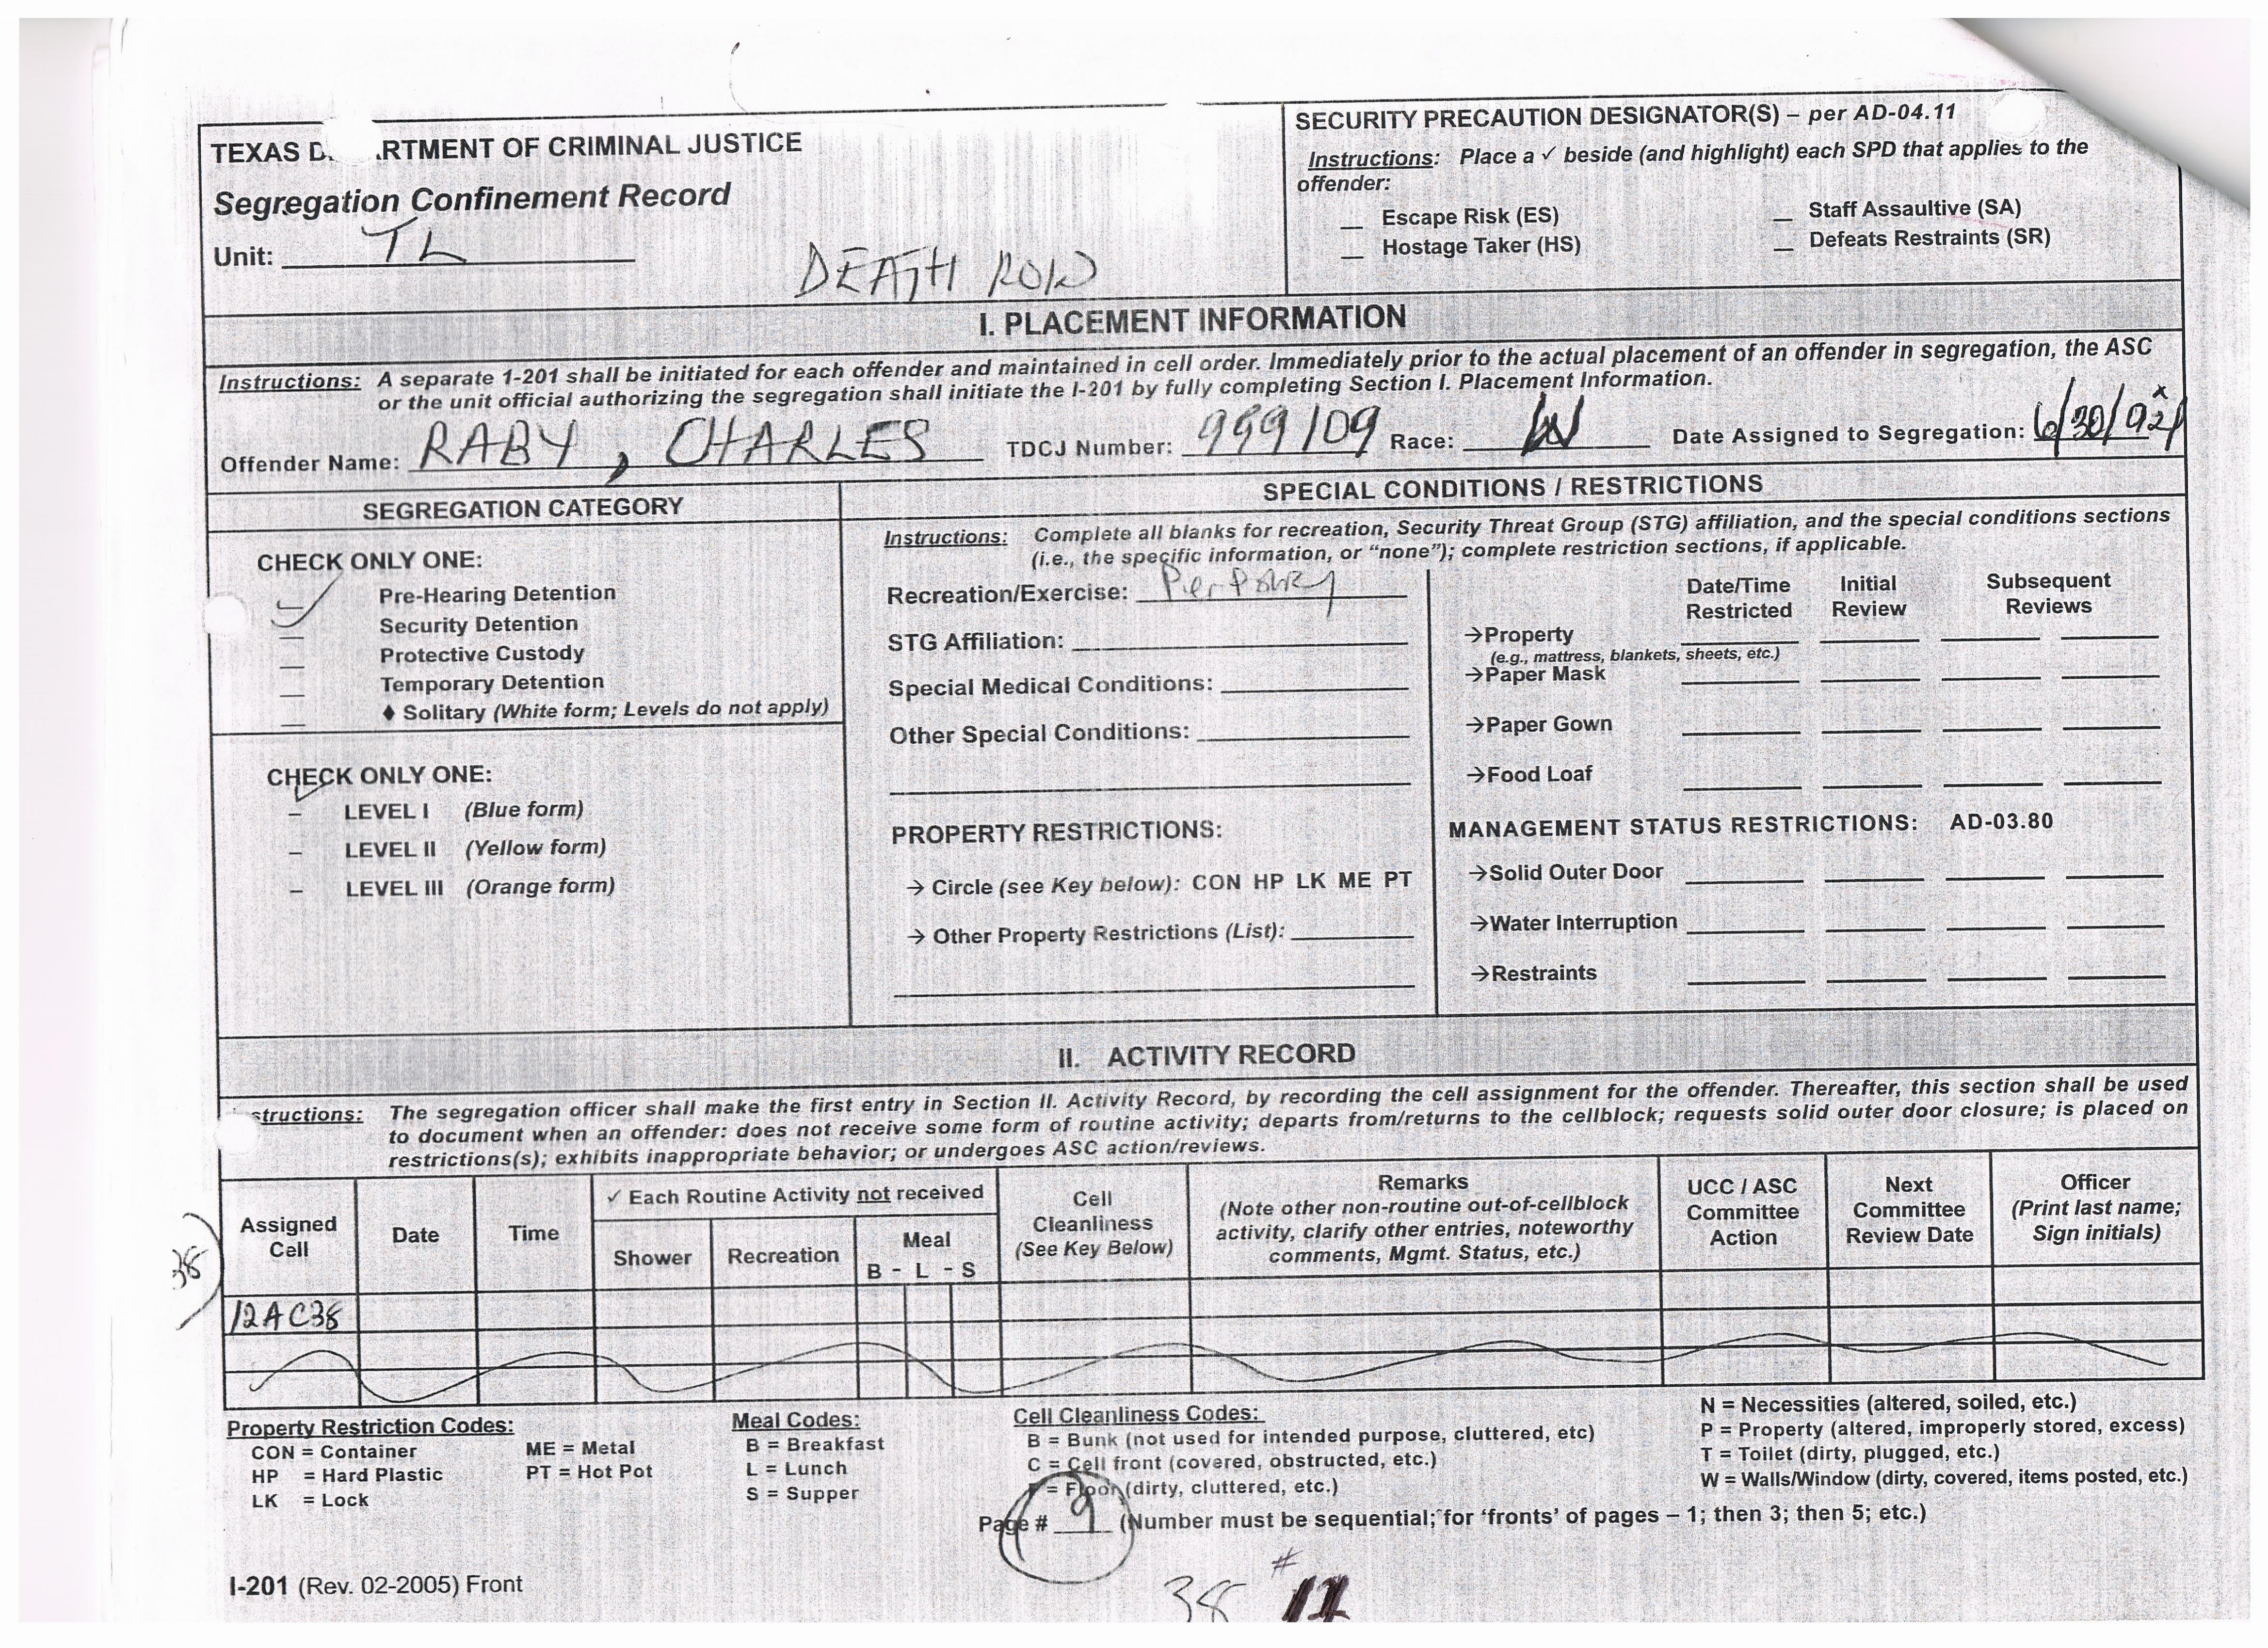 TEXAS D. ARTMENT OF CRIMINAL JUSTICE
Segregation Confinement Record
Unit: TL
DEATH ROW
SECURITY PRECAUTION DESIGNATOR(S) – per AD-04.11
Instructions: Place a ✓ beside (and highlight) each SPD that applies to the
offender:
__ Escape Risk (ES) __ Staff Assaultive (SA)
__ Hostage Taker (HS) __ Defeats Restraints (SR)
I. PLACEMENT INFORMATION
Instructions: A separate 1-201 shall be initiated for each offender and maintained in cell order. Immediately prior to the actual placement of an offender in segregation, the ASC
or the unit official authorizing the segregation shall initiate the I-201 by fully completing Section I. Placement Information.
Offender Name: RABY, CHARLES TDCJ Number: 999109 Race: W Date Assigned to Segregation: 6/30/
SEGREGATION CATEGORY
CHECK ONLY ONE:
✓ Pre-Hearing Detention
__ Security Detention
__ Protective Custody
__ Temporary Detention
__ ♦ Solitary (White form; Levels do not apply)
CHECK ONLY ONE:
✓ LEVEL I (Blue form)
– LEVEL II (Yellow form)
– LEVEL III (Orange form)
SPECIAL CONDITIONS / RESTRICTIONS
Instructions: Complete all blanks for recreation, Security Threat Group (STG) affiliation, and the special conditions sections
(i.e., the specific information, or “none”); complete restriction sections, if applicable.
Recreation/Exercise: Per Policy
STG Affiliation:
Special Medical Conditions:
Other Special Conditions:
PROPERTY RESTRICTIONS:
→ Circle (see Key below): CON HP LK ME PT
→ Other Property Restrictions (List):
Date/Time Initial Subsequent
Restricted Review Reviews
→Property
(e.g., mattress, blankets, sheets, etc.)
→Paper Mask
→Paper Gown
→Food Loaf
MANAGEMENT STATUS RESTRICTIONS: AD-03.80
→Solid Outer Door
→Water Interruption
→Restraints
II. ACTIVITY RECORD
structions: The segregation officer shall make the first entry in Section II. Activity Record, by recording the cell assignment for the offender. Thereafter, this section shall be used
to document when an offender: does not receive some form of routine activity; departs from/returns to the cellblock; requests solid outer door closure; is placed on
restrictions(s); exhibits inappropriate behavior; or undergoes ASC action/reviews.
38
Assigned
Cell
Date
Time
✓ Each Routine Activity not received
Shower
Recreation
Meal
B - L - S
Cell
Cleanliness
(See Key Below)
Remarks
(Note other non-routine out-of-cellblock
activity, clarify other entries, noteworthy
comments, Mgmt. Status, etc.)
UCC / ASC
Committee
Action
Next
Committee
Review Date
Officer
(Print last name;
Sign initials)
12AC38
Property Restriction Codes:
CON = Container ME = Metal
HP = Hard Plastic PT = Hot Pot
LK = Lock
Meal Codes:
B = Breakfast
L = Lunch
S = Supper
Cell Cleanliness Codes:
B = Bunk (not used for intended purpose, cluttered, etc)
C = Cell front (covered, obstructed, etc.)
F = Floor (dirty, cluttered, etc.)
N = Necessities (altered, soiled, etc.)
P = Property (altered, improperly stored, excess)
T = Toilet (dirty, plugged, etc.)
W = Walls/Window (dirty, covered, items posted, etc.)
Page # 9 (Number must be sequential; for ‘fronts’ of pages – 1; then 3; then 5; etc.)
I-201 (Rev. 02-2005) Front
38 # 11